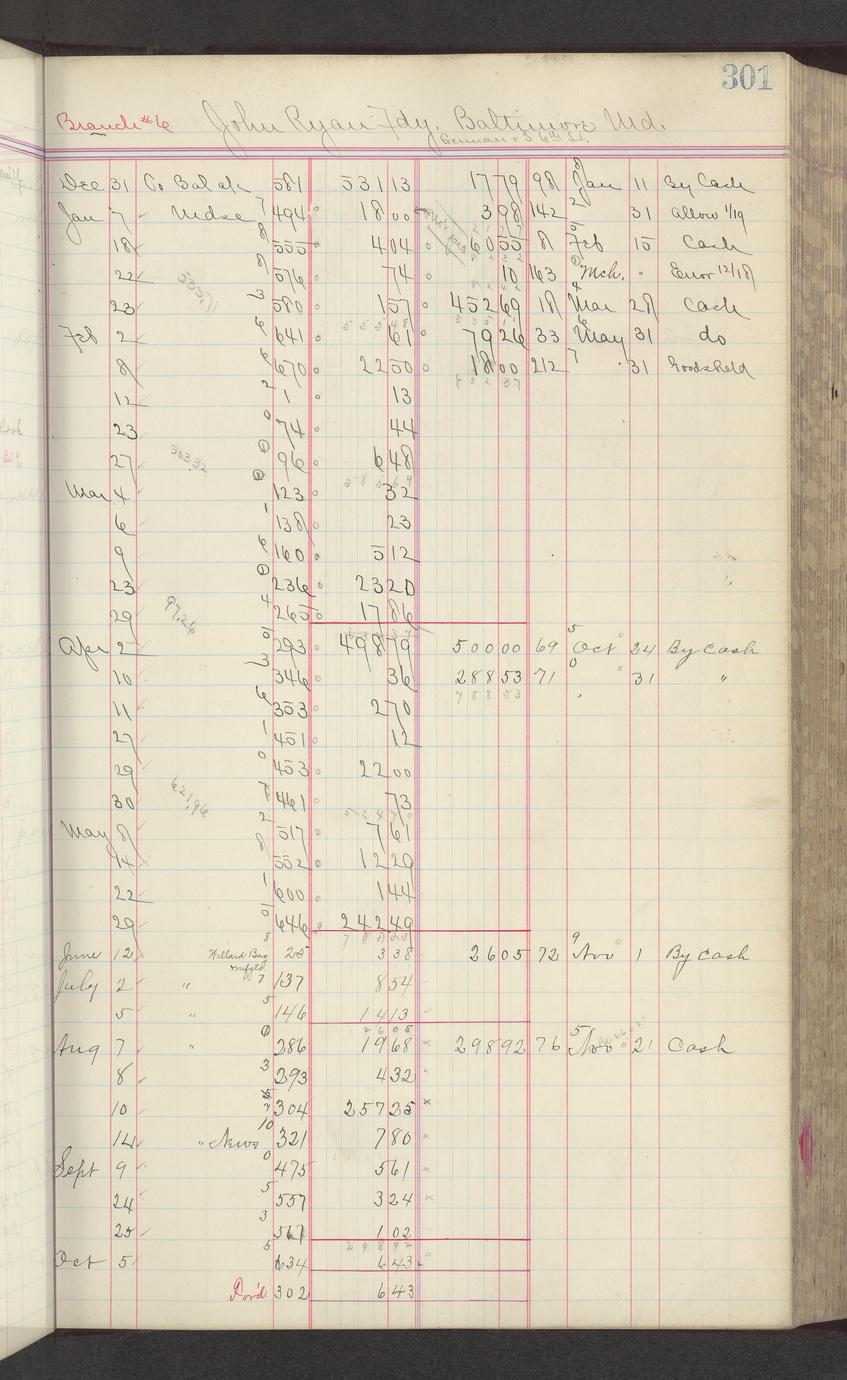 301
Branch #6 John Ryan Fdy. Baltimore Md.
German & S 6th St.
Dec 31 To Balance 581 531 13 17 79 98 Jan 11 By Cash
Jan 7 Mdse 494 18 00 3 98 142 31 Allow 1/19
18 555 4 04 60 55 81 Feb 15 Cash
22 576 74 10 163 Mch. " Error 12/18
533.71
23 580 1 57 452 69 18 Mar 28 Cash
Feb 2 641 61 79 26 33 May 31 do
8 670 22 50 18 00 212 31 Goods held
12 1 13
23 74 44
27 96 6 48
503.32
Mar 4 123 32
6 138 23
9 160 5 12
23 236 23 20
29 265 17 86
97.26
Apr 2 293 498 79 500 00 69 Oct 24 By Cash
10 346 36 288 53 71 31 "
788 53
11 353 2 70
27 451 12
29 453 22 00
30 461 73
621.96
May 8 517 7 61
14 552 12 29
22 600 1 44
29 646 242 49
June 12 Hillard Bag 25 3 38 26 05 72 Nov 1 By Cash
July 2 " 137 8 54
5 " 146 14 13
26 05
Aug 7 " 286 19 68 298 92 76 Nov 21 Cash
8 293 4 32
10 304 257 25
14 " News 321 7 80
Sept 9 475 5 61
24 557 3 24
25 567 1 02
298 92
Oct 5 634 6 43
For'd 302 6 43